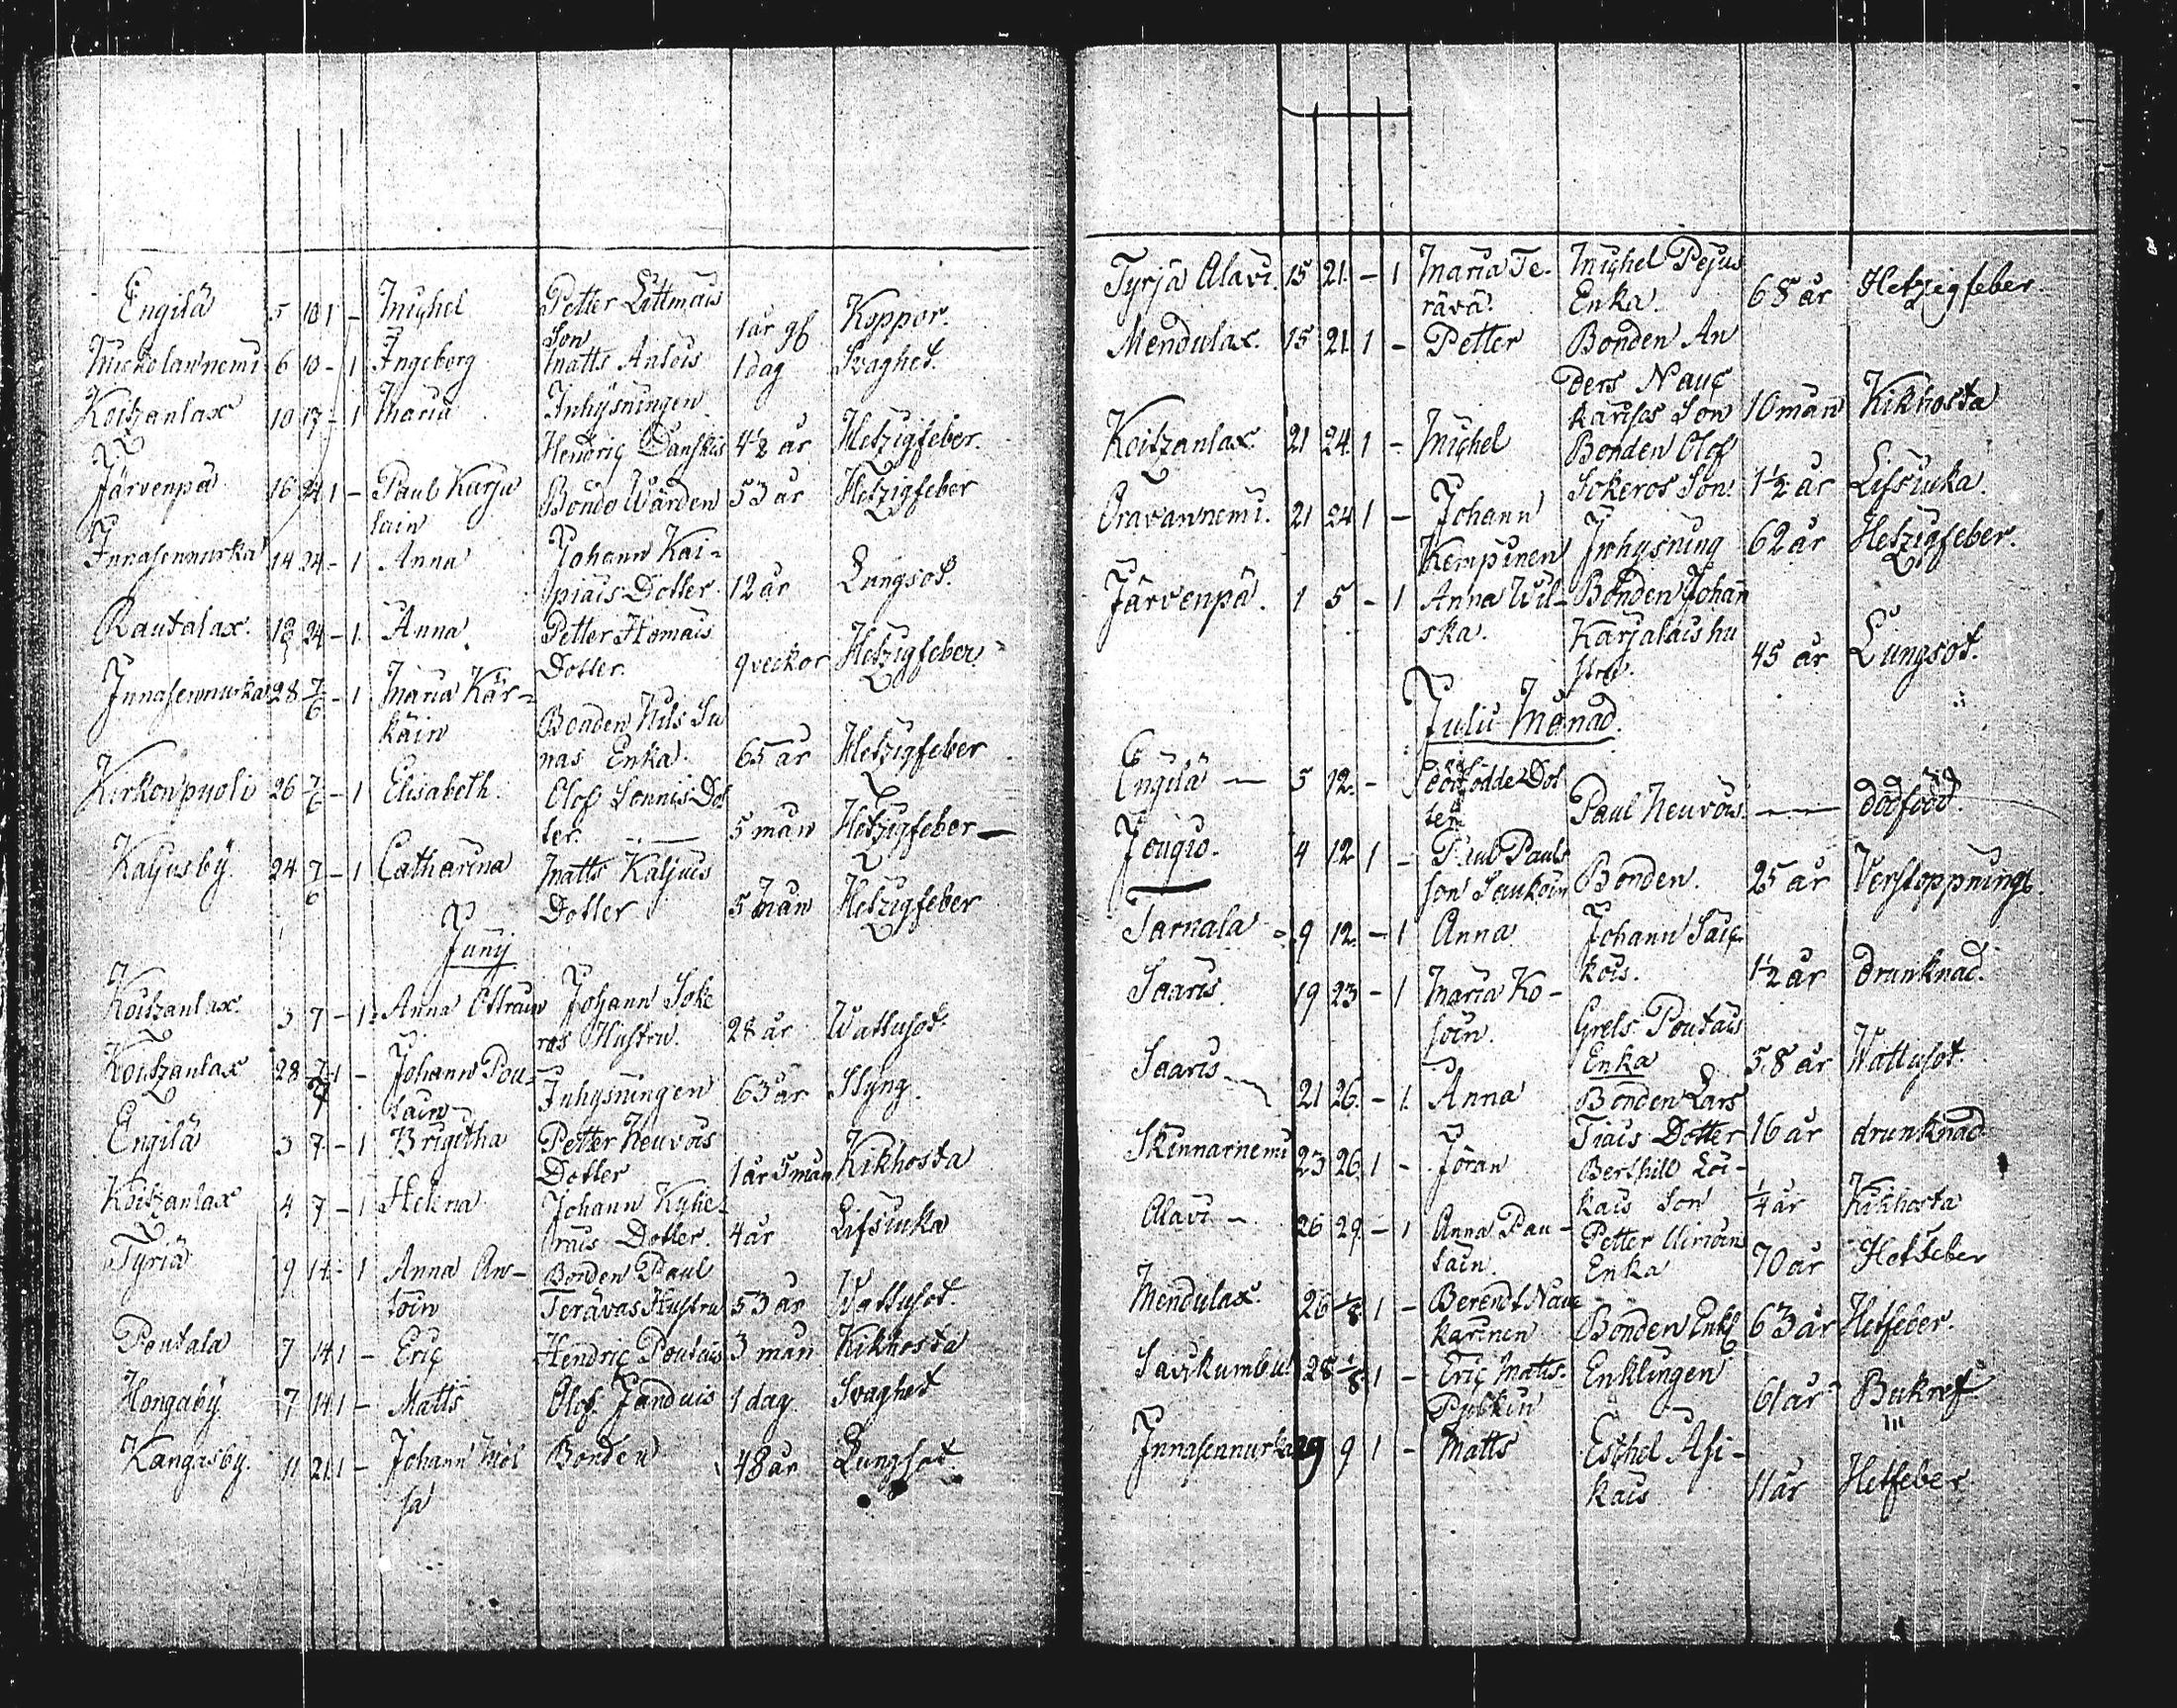 Engilä 5 10 1 - Michel Petter Littmais
Son 1 år gl. Koppor.
Mickolannemi 6 10 - 1 Ingeborg Matts Antois 1 dag Svaghet.
Koitzanlax 10 17 - 1 Maria Inhysningen
Hendrig Danskis 4½ år Hetzigfeber.
Järvenpä 16 24 1 - Paul Karja Bondo Wärden 53 år Hetzigfeber
lain
Innasennurka 14 24 - 1 Anna Johann Kai-
piais Dotter 12 år Lungsot.
Rautalax. 18 24 - 1. Anna Petter Homais
Dotter. 9 veckor Hetzigfeber
Innasennurka 28 7/6 - 1 Maria Kär-
käin Bonden Nils Su
nas Enka. 65 år Hetzigfeber
Kirkonpuoli 26 7/6 - 1 Elisabeth. Olof Sonnis Dot
ter. 5 mån Hetzigfeber
Kaljusby. 24 7/6 - 1 Catharina Matts Kaljuis
Dotter 5 mån Hetzigfeber
Junij
Koitzanlax. 3 7 - 1. Anna Ottrain Johann Soke
ros Hustru. 28 år Wattusot.
Koitzanlax 28 7/7 1 - Johann Pou-
tain Inhysningen 63 år Styng.
Engilä 3 7 - 1 Brigitha Petter Heuvois
Dotter 1 år 5 mån Kikhosta
Koitzanlax 4 7 - 1 Helena Johann Kyhe-
rais Dotter. 4 år Lifsiuka
Tyriä 9 14 - 1 Anna An- Bonden Paul
toin Terävas Hustru 53 år Wattusot.
Poutala 7 14 1 - Eric Hendric Poutais 3 mån Kikhosta
Hongaby 7 14 1 - Matts Olof Janduis 1 dag Svaghet
Kangasby. 11 21 1 - Johann Möl Bonden 48 år Lungsot.
sä
Tyrjä Alavi. 15 21. - 1 Maria Te- Michel Pejus
rävä. Enka. 68 år Hetzigfeber.
Mendulax. 15 21 1 - Petter Bonden An
ders Nauc
karises Son 10 mån Kikhosta
Koitzanlax 21 24 1 - Michel Bonden Olof
Sokeros Son. 1½ år Lifsiuka.
Oravannemi. 21 24 1 - Johann
Kempinen Inhysning 62 år Hetzigfeber.
Järvenpä. 1 5 - 1 Anna Wil- Bonden Johan
ska. Karjalais hu
stru. 45 år Lungsot.
Julii Månad.
Engilä 5 12. - dödfödde Dot
ter Paul Heuvois dödfödd.
Jougio. 4 12 1 - Paul Pauls
son Saukoin Bonden. 25 år Verstoppning.
Tarnala 9 12. - 1 Anna Johann Saic
kois. 1½ år drunknad.
Saaris. 19 23 - 1 Maria Ko-
soin. Grels Poutais
Enka 58 år Wattusot.
Saaris 21 26. - 1. Anna Bonden Lars
Tiais Dotter 16 år drunknad
Skinnarnemi 23 26. 1 - Jöran Berthill Loi-
kais Son ¼ år Kikhosta
Alavi - 26 29. - 1 Anna Pau-
tain. Enka 70 år Hetfeber
Mendulax. 26 1/8. 1 - Berendt Nauc
karinen Bonden Enkl 63 år Hetfeber.
Savikumbu. 28 1/8. 1 - Eric Matts. Enklingen
61 år Bukref
Innasennurka 29 9 1 - Matts Eschel Asi-
kais 11 år Hetfeber